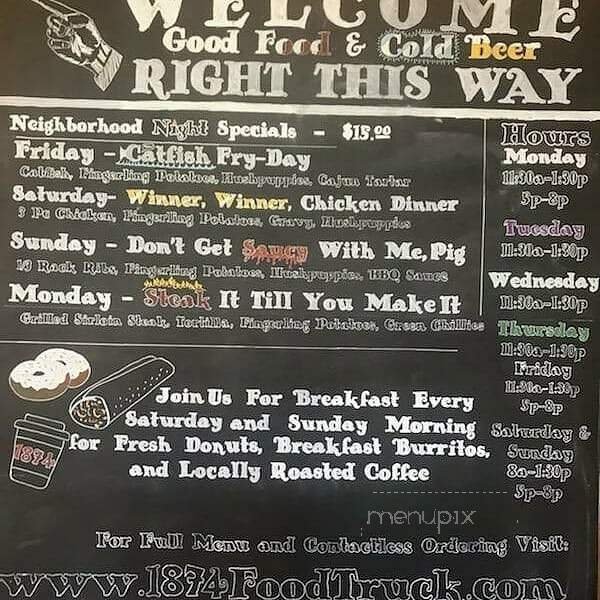 WELCOME
Good Food & Cold Beer
RIGHT THIS WAY
Neighborhood Night Specials - $15.00
Friday - Catfish Fry-Day
Catfish, Fingerling Potatoes, Hushpuppies, Cajun Tartar
Saturday- Winner, Winner, Chicken Dinner
3 Pc Chicken, Fingerling Potatoes, Gravy, Hushpuppies
Sunday - Don't Get Saucy With Me, Pig
Rack Ribs, Fingerling Potatoes, Hushpuppies, BBQ Sauce
Monday - Steak It Till You Make It
Grilled Sirloin Steak, Tortilla, Fingerling Potatoes, Green Chillies
Hours
Monday
11:30a-1:30p
5p-8p
Tuesday
11:30a-1:30p
Wednesday
11:30a-1:30p
Thursday
11:30a-1:30p
Friday
11:30a-1:30p
5p-8p
Saturday &
Sunday
8a-1:30p
5p-8p
1874
Join Us For Breakfast Every
Saturday and Sunday Morning
for Fresh Donuts, Breakfast Burritos,
and Locally Roasted Coffee
menupix
For Full Menu and Contactless Ordering Visit:
www.1874FoodTruck.com